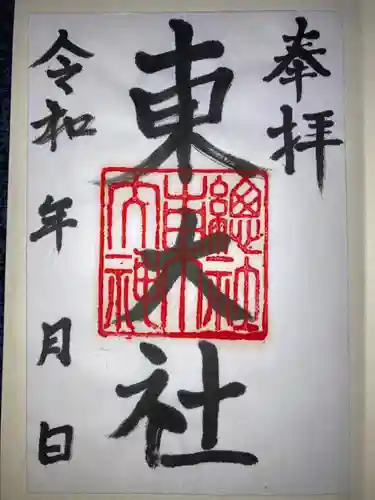 奉拝
東大社
總社東大神
令和 年 月 日